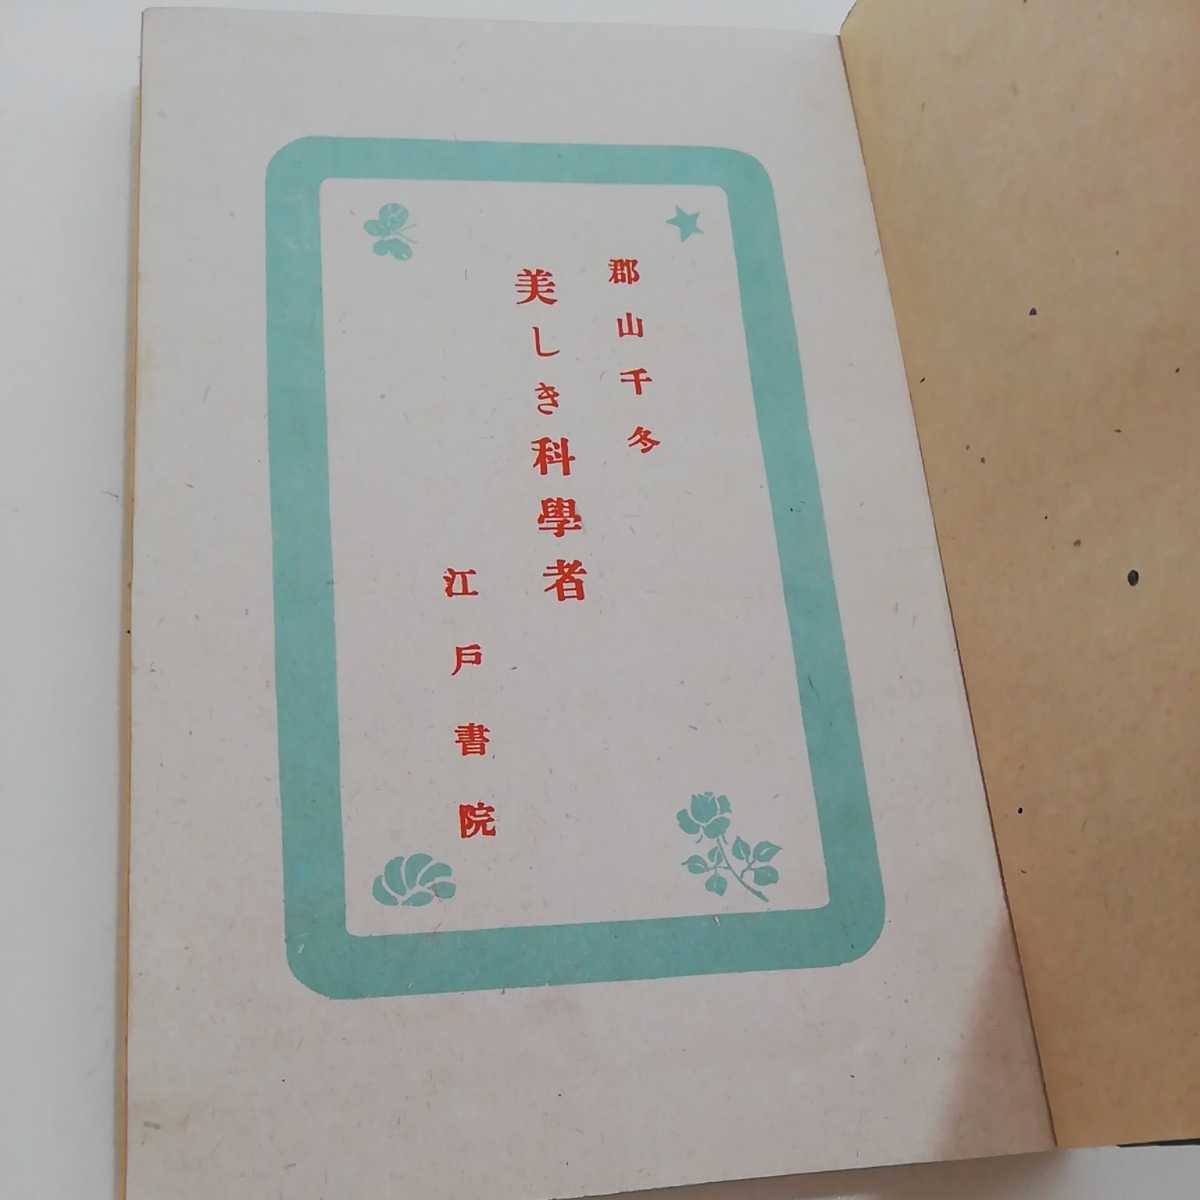 郡山千冬
美しき科學者
江戶書院